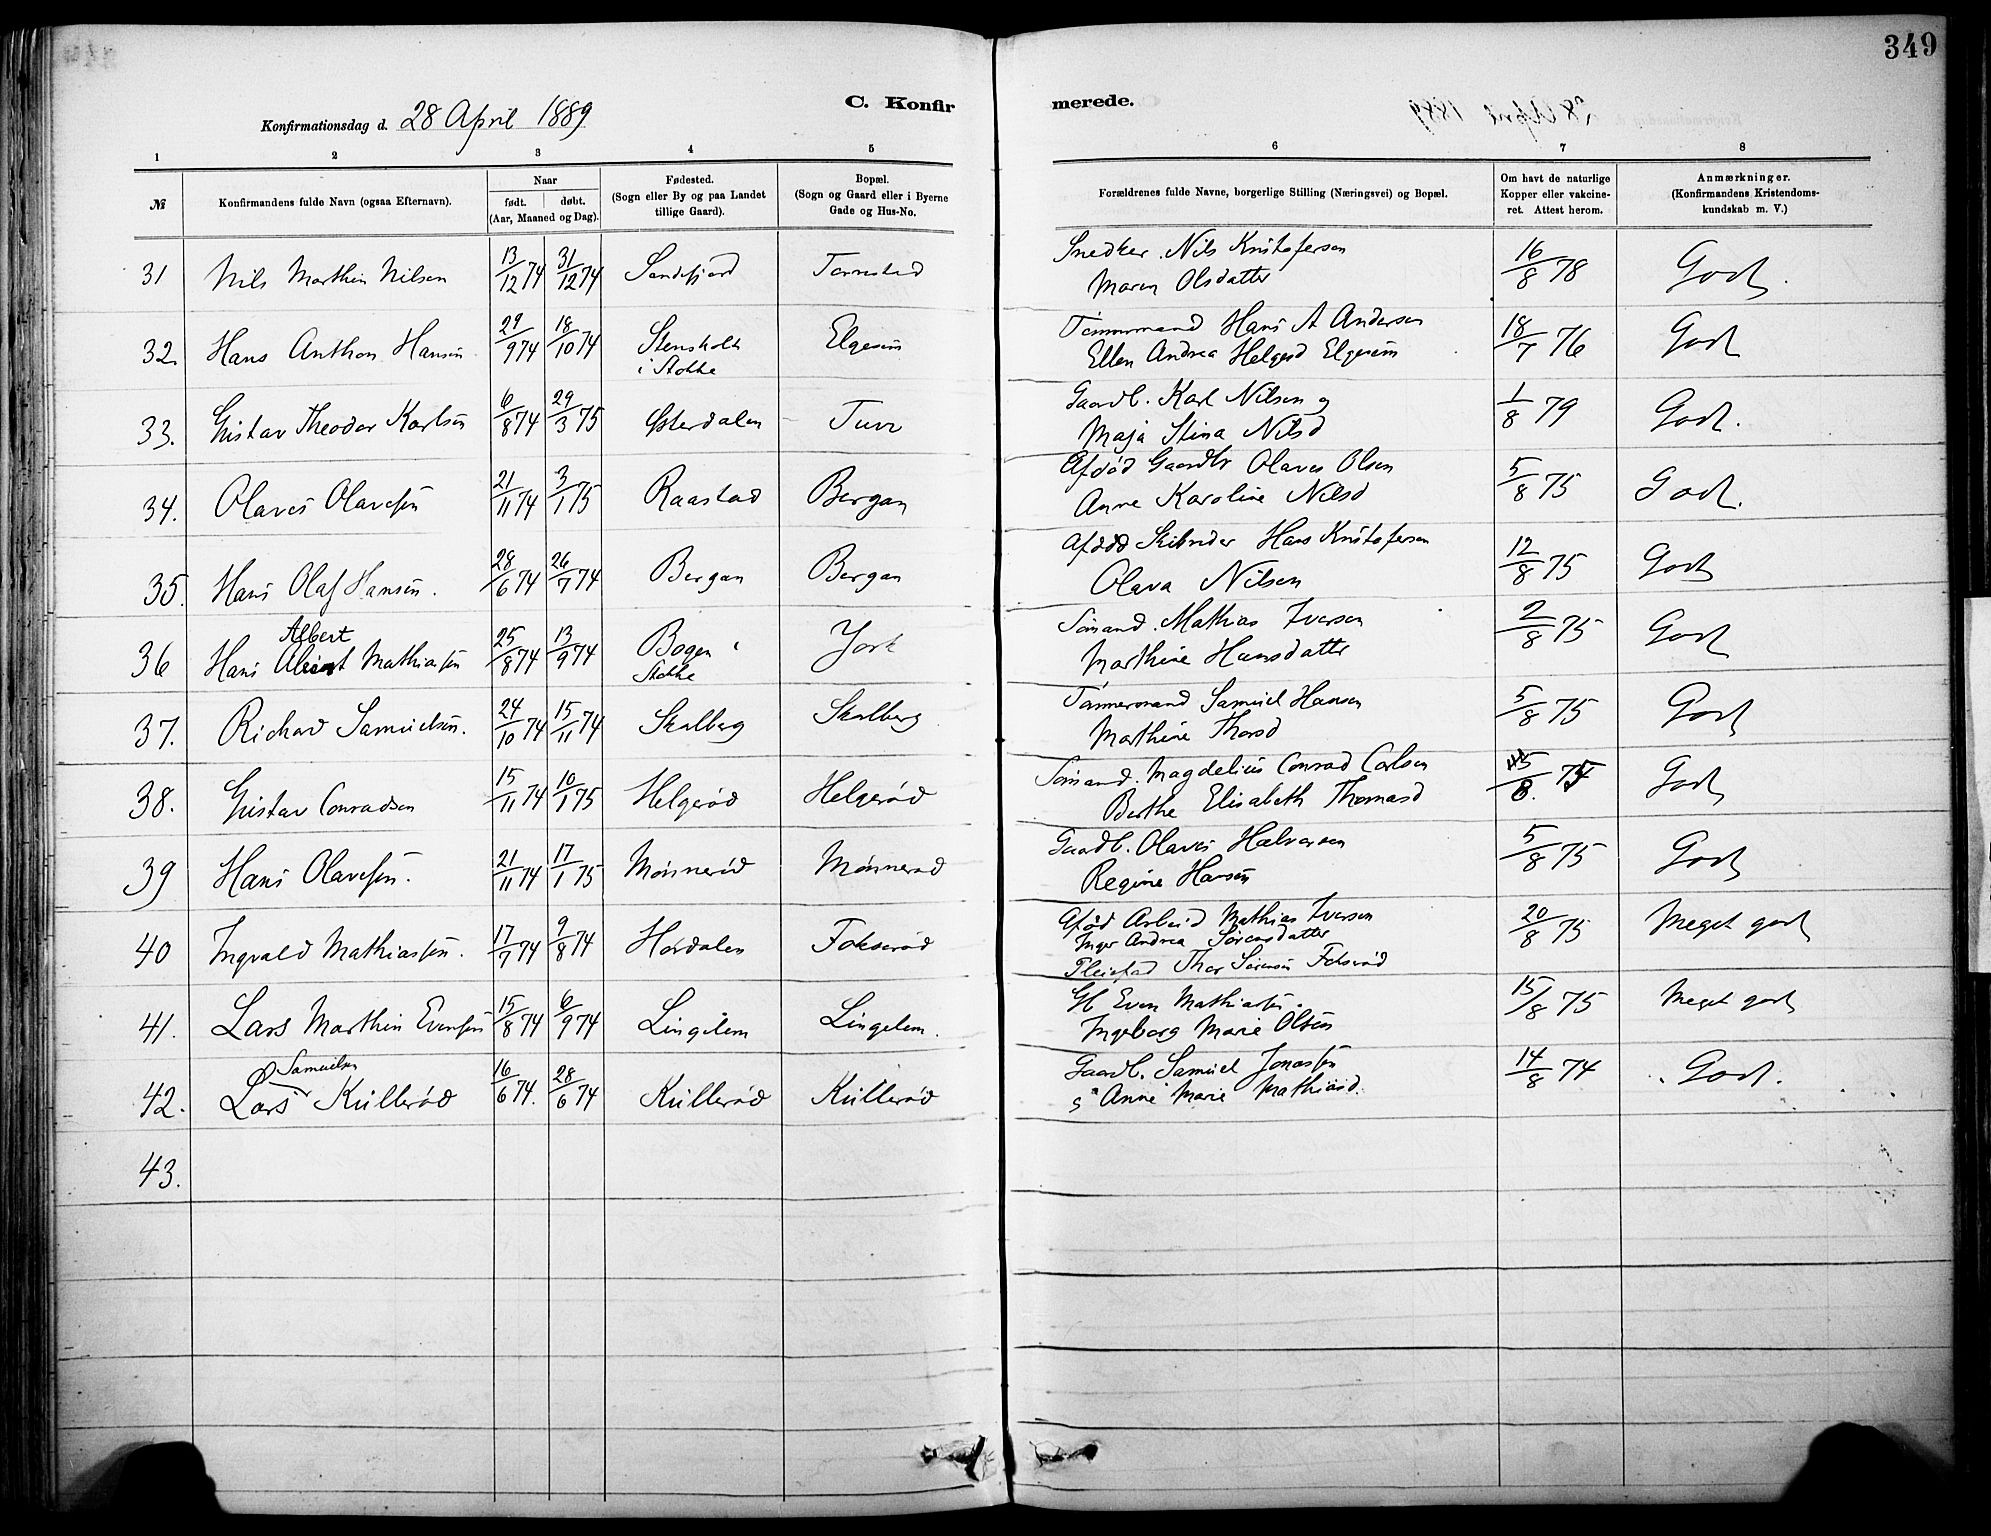 349
C. Konfirmerede.
Konfirmationsdag d. 28 April 1889
1 2 3 4 5 6 7 8
№ | Konfirmandens fulde Navn (ogsaa Efternavn). | Naar født. døbt. (Aar, Maaned og Dag). | Fødested. (Sogn eller By og paa Landet tillige Gaard). | Bopæl. (Sogn og Gaard eller i Byerne Gade og Hus-No. | Forældrenes fulde Navne, borgerlige Stilling (Næringsvei) og Bopæl. | Om havt de naturlige Kopper eller vakcineret. Attest herom. | Anmærkninger. (Konfirmandens Kristendomskundskab m. V.)
31 Nils Marthin Nilsen 13/12 74 31/12 74 Sandefjord Tarnstad Snedker. Nils Kristofersen
Maren Olsdatter 16/8 78 Godt.
32. Hans Anthon Hansen 29/9 74 18/10 74 Stensholt i Stokke Elgesem Tømmermand Hans A Andersen
Ellen Andrea Helgesd Elgesem 18/7 76 Godt
33. Gustav Theodor Karlsen 6/8 74 29/3 75 Østerdalen Tuve Gaardb. Karl Nilsen og
Maja Stina Nilsd 1/8 79 Godt.
34. Olaves Olavesen 21/11 74 3/1 75 Raastad Bergan Afdød Gaardbr Olaves Olsen
Anne Karoline Nilsd 5/8 75 Godt.
35. Hans Olaf Hansen. 28/6 74 26/7 74 Bergan Bergan Afdød Skibsreder Hans Kristofersen
Olava Nilsen 12/8 75 Godt
36 Hans Albert Mathiasen 25/8 74 13/9 74 Bogen i Stokke York Sømand. Mathias Iversen
Marthine Hansdatter 2/8 75 Godt
37. Richard Samuelsen. 24/10 74 15/11 74 Skolberg Skolberg Tømmermand Samuel Hansen
Marthine Thorsd 5/8 75 Godt
38. Gustav Conradsen 15/11 74 10/1 75 Helgerød Helgerød Sømand. Magdelius Conrad Carlsen
Berthe Elisabeth Thomasd 5/8. 75 Godt
39 Hans Olavesen. 21/11 74 17/1 75 Mønnerød Mønnerød Gaardb. Olaves Halvorsen
Regine Hansen 5/8 75 Godt
40 Ingvald Mathiassen. 17/7 74 9/8 74 Hovdalen Fokserød Afdød Arbeid Mathias Iversen
Inger Andrea Sørensdatter
Pleiefad Thor Sørensen Fokserød 20/8 75 Meget godt
41. Lars Marthin Evensen 15/8 74 6/9 74 Lingelem Lingelem. Gb Even Mathiassen.
Ingeborg Marie Olsen 15/8 75 Meget godt
42. Lars Samuelsen Kullerød 16/6 74. 28/6 74 Kullerød Kullerød Gaardb. Samuel Jonassen
Anne Marie Mathiasd. 14/8 74 Godt.
43.